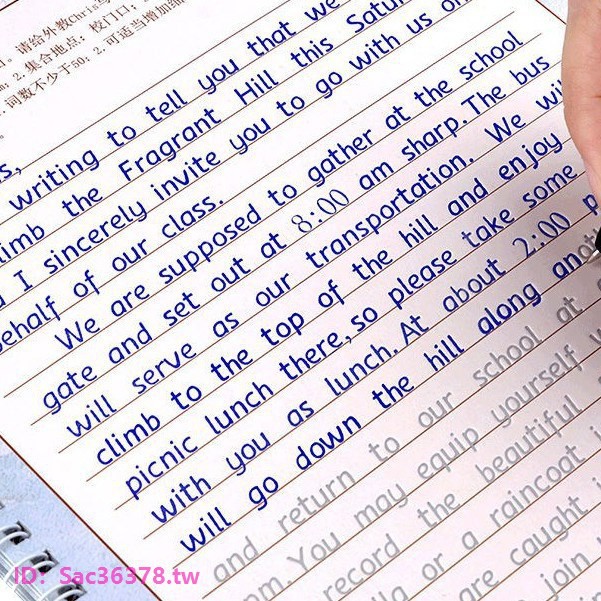 请给外教Chris写
2.集合地点：校门口；
词数不少于50；2.可适当增加细
writing to tell you that we
climb the Fragrant Hill this Satur
I sincerely invite you to go with us on
behalf of our class.
We are supposed to gather at the school
gate and set out at 8:00 am sharp. The bus
will serve as our transportation. We will
climb to the top of the hill and enjoy
picnic lunch there, so please take some
with you as lunch. At about 2:00 p
will go down the hill along anot
and return to our school at
pm. You may equip yourself w
record the beautiful
or a raincoat i
are caught i
join u
ID: Sac36378.tw